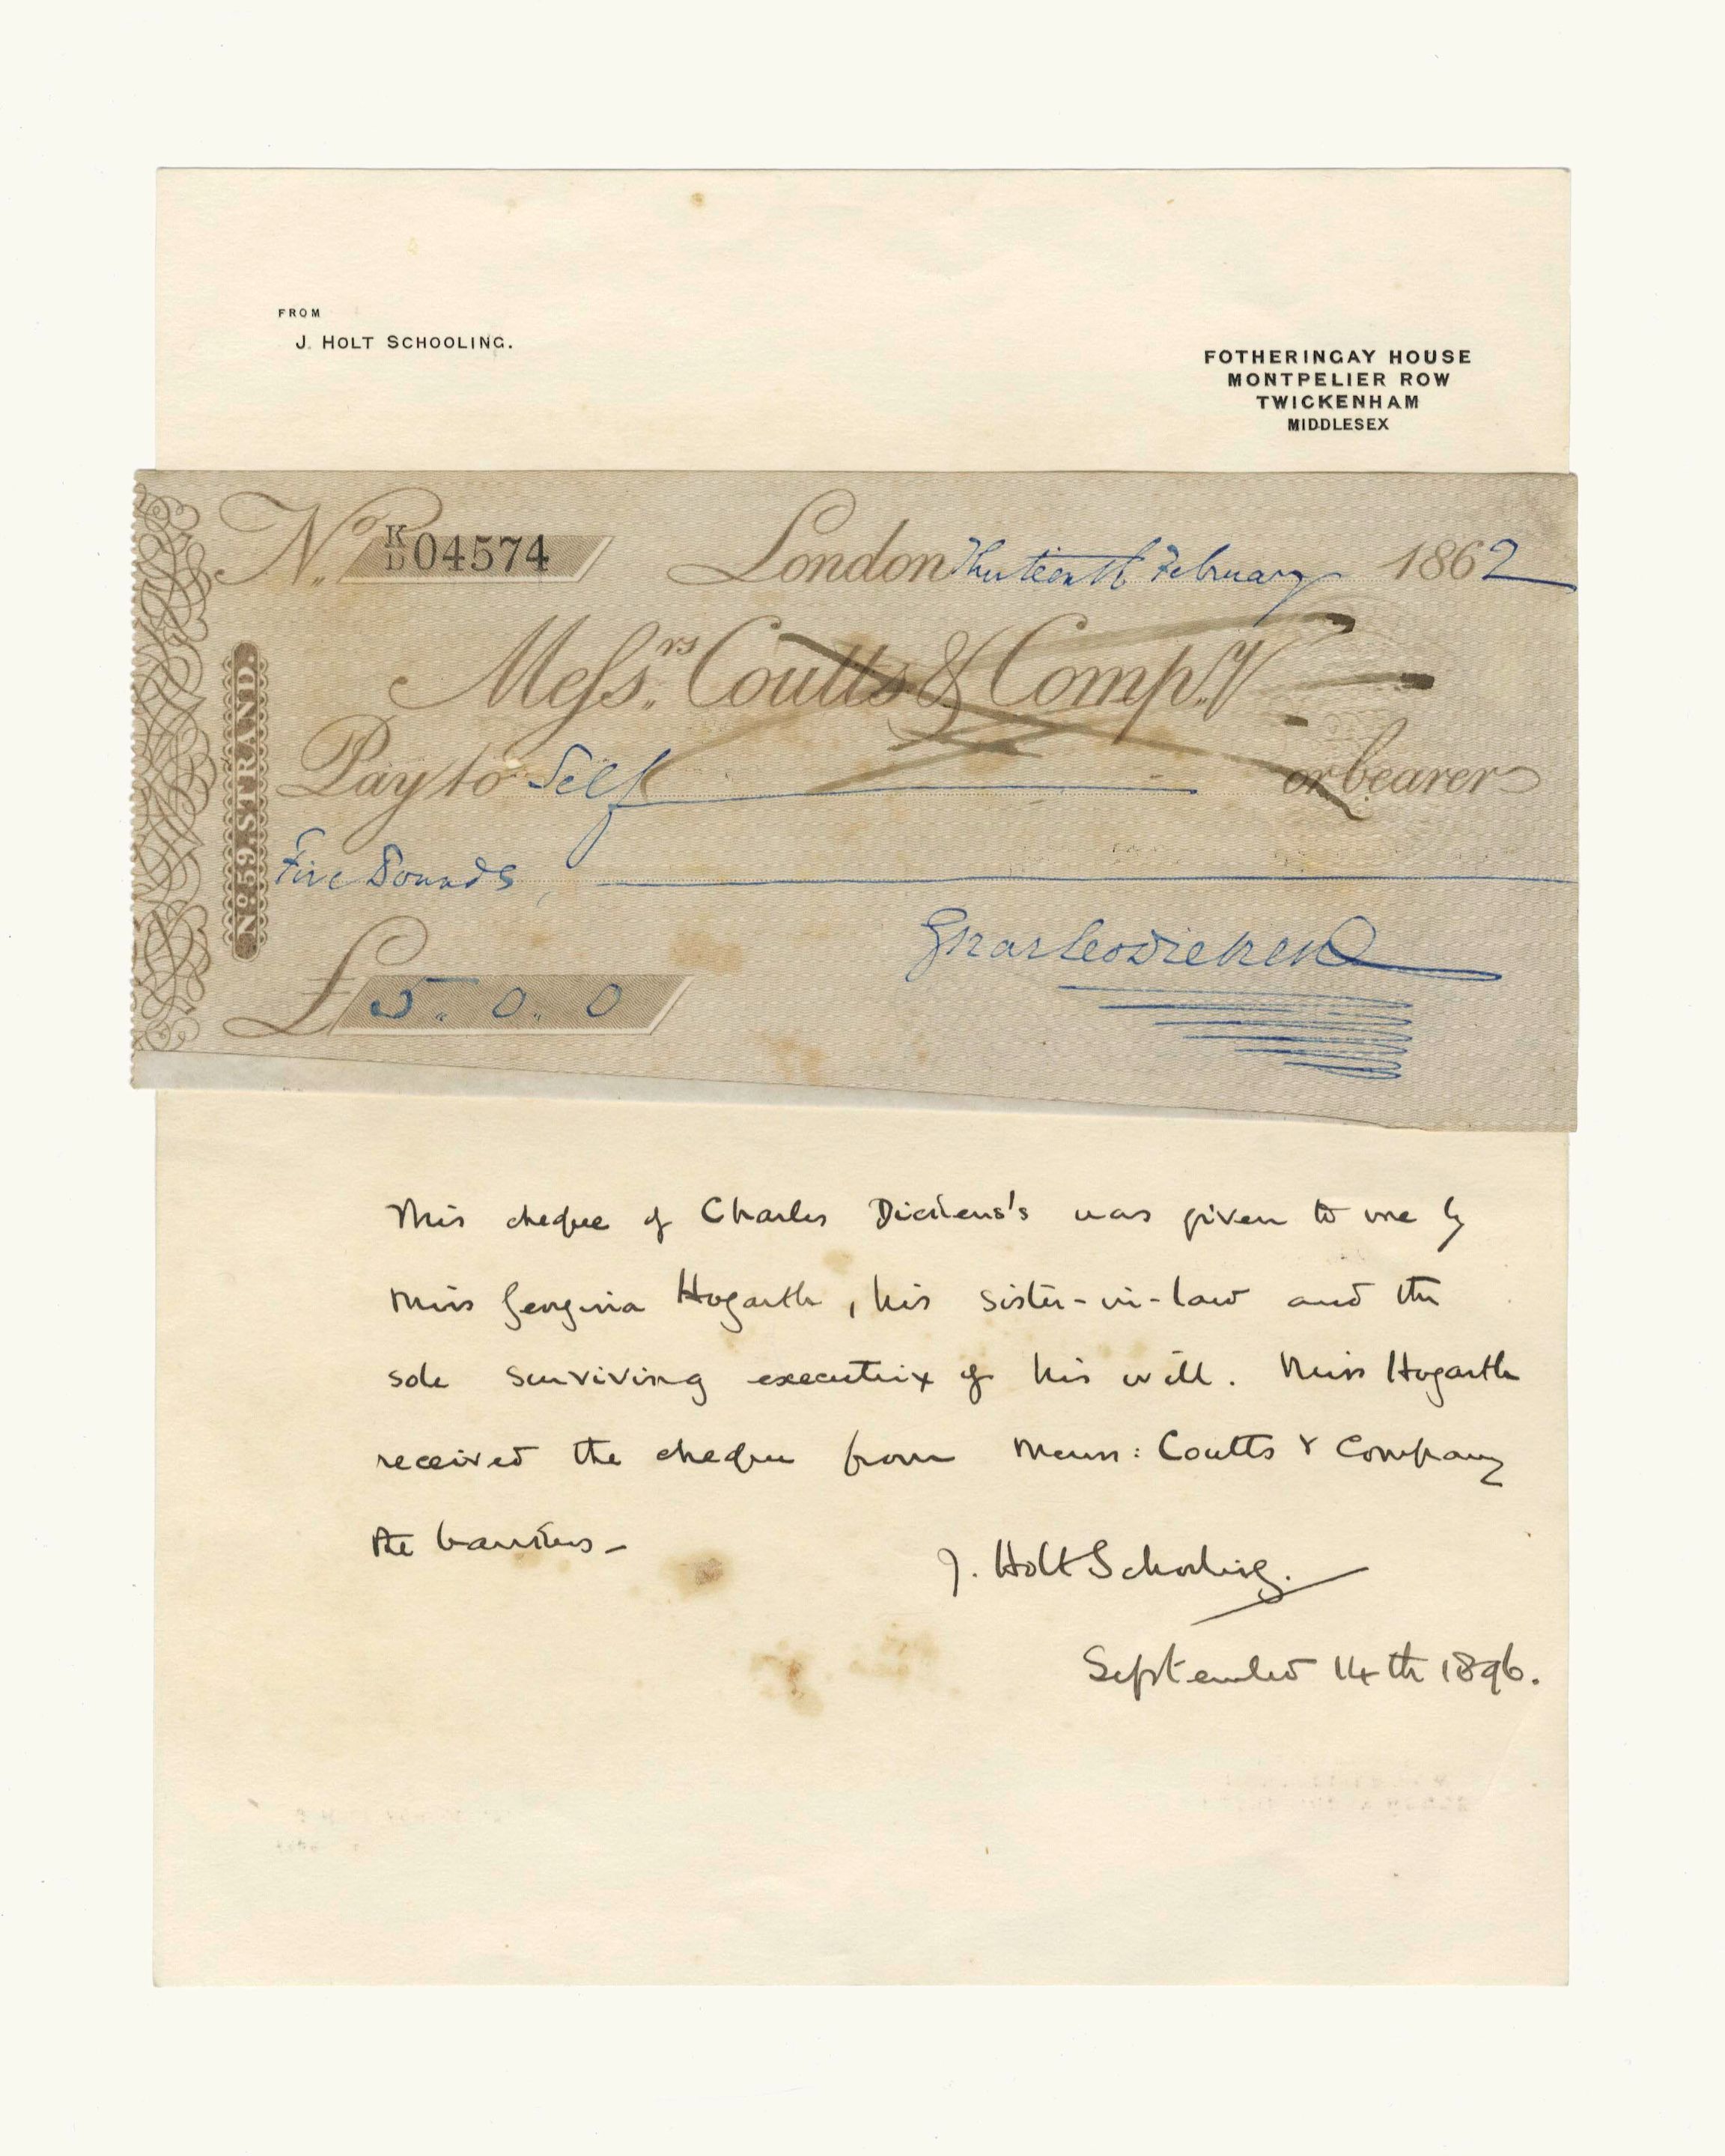 FROM
J. HOLT SCHOOLING.
FOTHERINGAY HOUSE
MONTPELIER ROW
TWICKENHAM
MIDDLESEX
No. K/D 04574 London Thirteenth February 1862
Messrs. Coutts & Compy.
Pay to Self or bearer
Five Pounds,
Charles Dickens
£ 5. 0. 0
No. 59. STRAND.
This cheque of Charles Dickens's was given to me by
Miss Georgina Hogarth, his sister-in-law and the
sole surviving executrix of his will. Miss Hogarth
received the cheque from Messrs: Coutts & Company
the bankers -
J. Holt Schooling.
September 14th 1896.